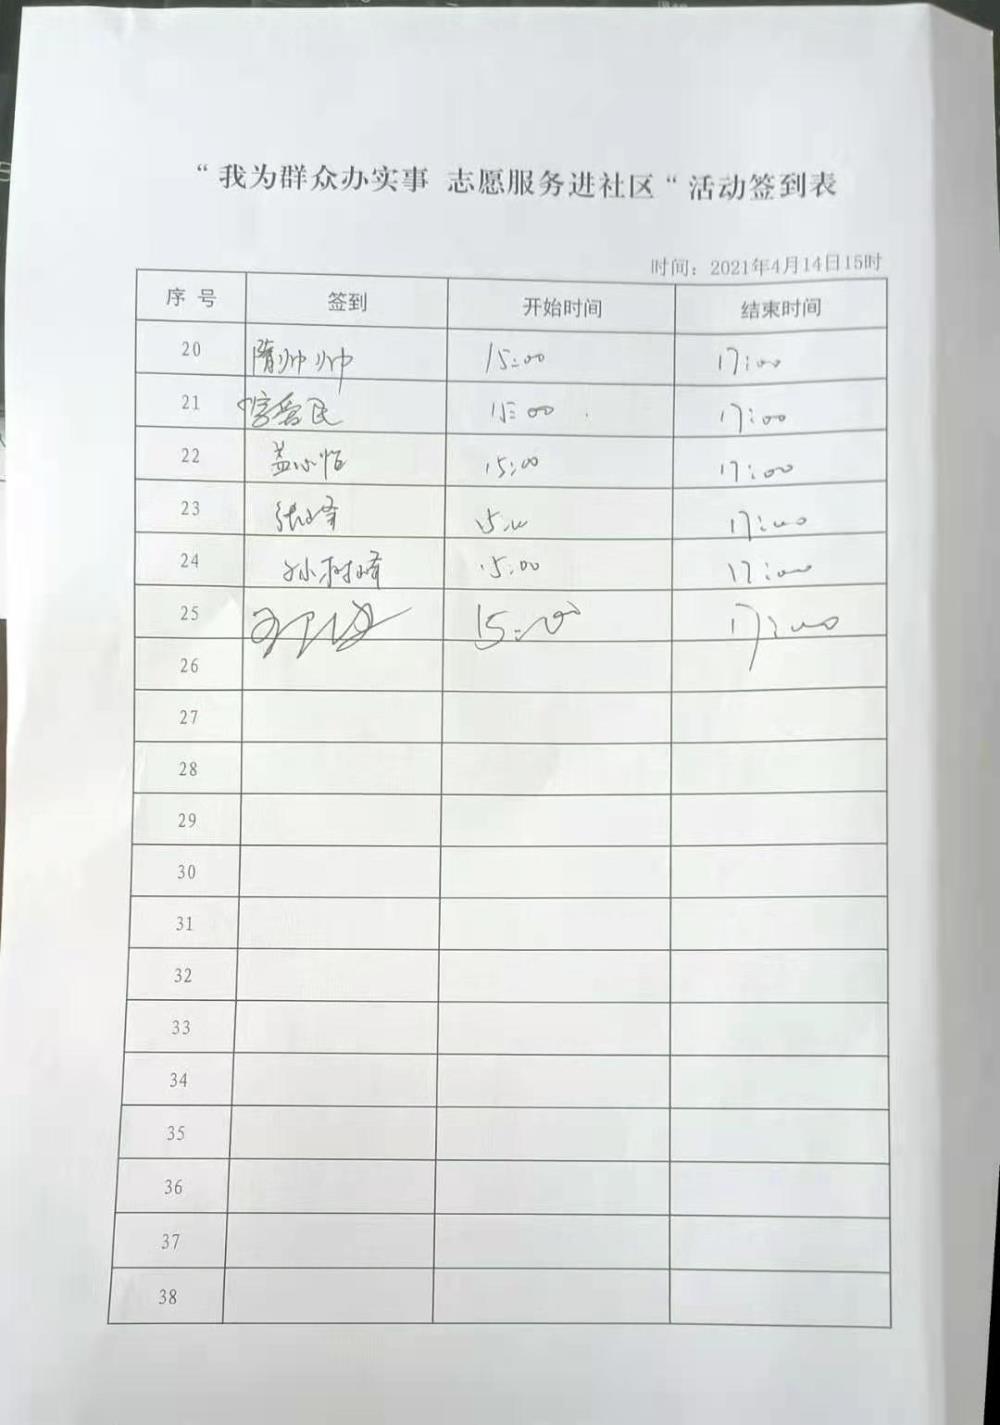 “我为群众办实事 志愿服务进社区“活动签到表
时间：2021年4月14日15时
序 号 签到 开始时间 结束时间
20 隋帅帅 15:00 17:00
21 15:00 17:00
22 15:00 17:00
23 17:00
24 孙树峰 15:00 17:00
25 15:00 17:00
26
27
28
29
30
31
32
33
34
35
36
37
38